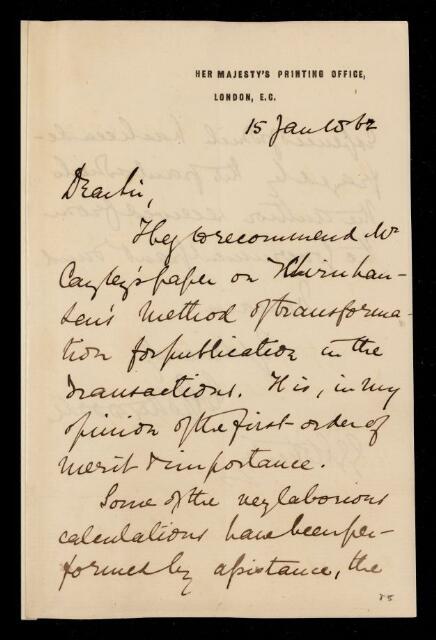 HER MAJESTY'S PRINTING OFFICE,
LONDON, E.C.
15 Jan 1862
Dear Sir,
I beg to recommend Mr
Cayley's paper on Tschirnhau-
sen's method of transforma-
tion for publication in the
Transactions. It is, in my
opinion of the first order of
merit & importance.
Some of the very laborious
calculations have been per-
formed by assistance, the
85